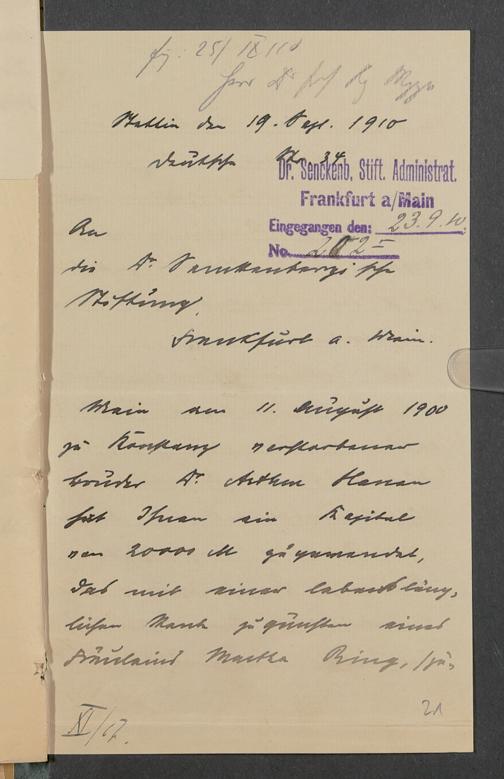 25/IX 10
Herr Dr
Stettin den 19. Sept. 1910
Deutsche Str. 34
Dr. Senckenb. Stift. Administrat.
Frankfurt a/Main
Eingegangen den: 23.9.10.
No.
An
die Dr. Senckenbergische
Stiftung
Frankfurt a. Main.
Mein am 11. August 1900
zu Konstanz verstorbener
Bruder Dr. Arthur
hat Ihnen ein Kapital
von 20000 M zugewendet,
das mit einer lebensläng-
lichen Rente zugunsten eines
Fräuleins Martha Ring,
21
XI/17.